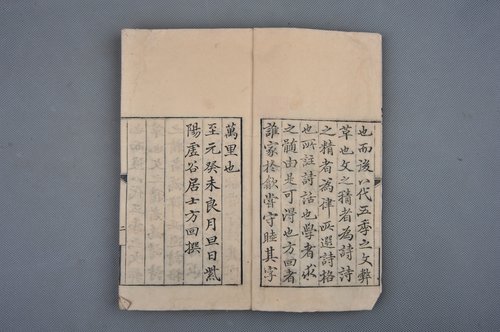 也而後八代五季之文弊
革也文之精者為詩詩
之精者為律所選詩格
也所註詩話也學者求
之髓由是可得也方回者
誰家扵歙嘗守睦其字
萬里也
至元癸未良月旦日紫
陽虛谷居士方回撰
二